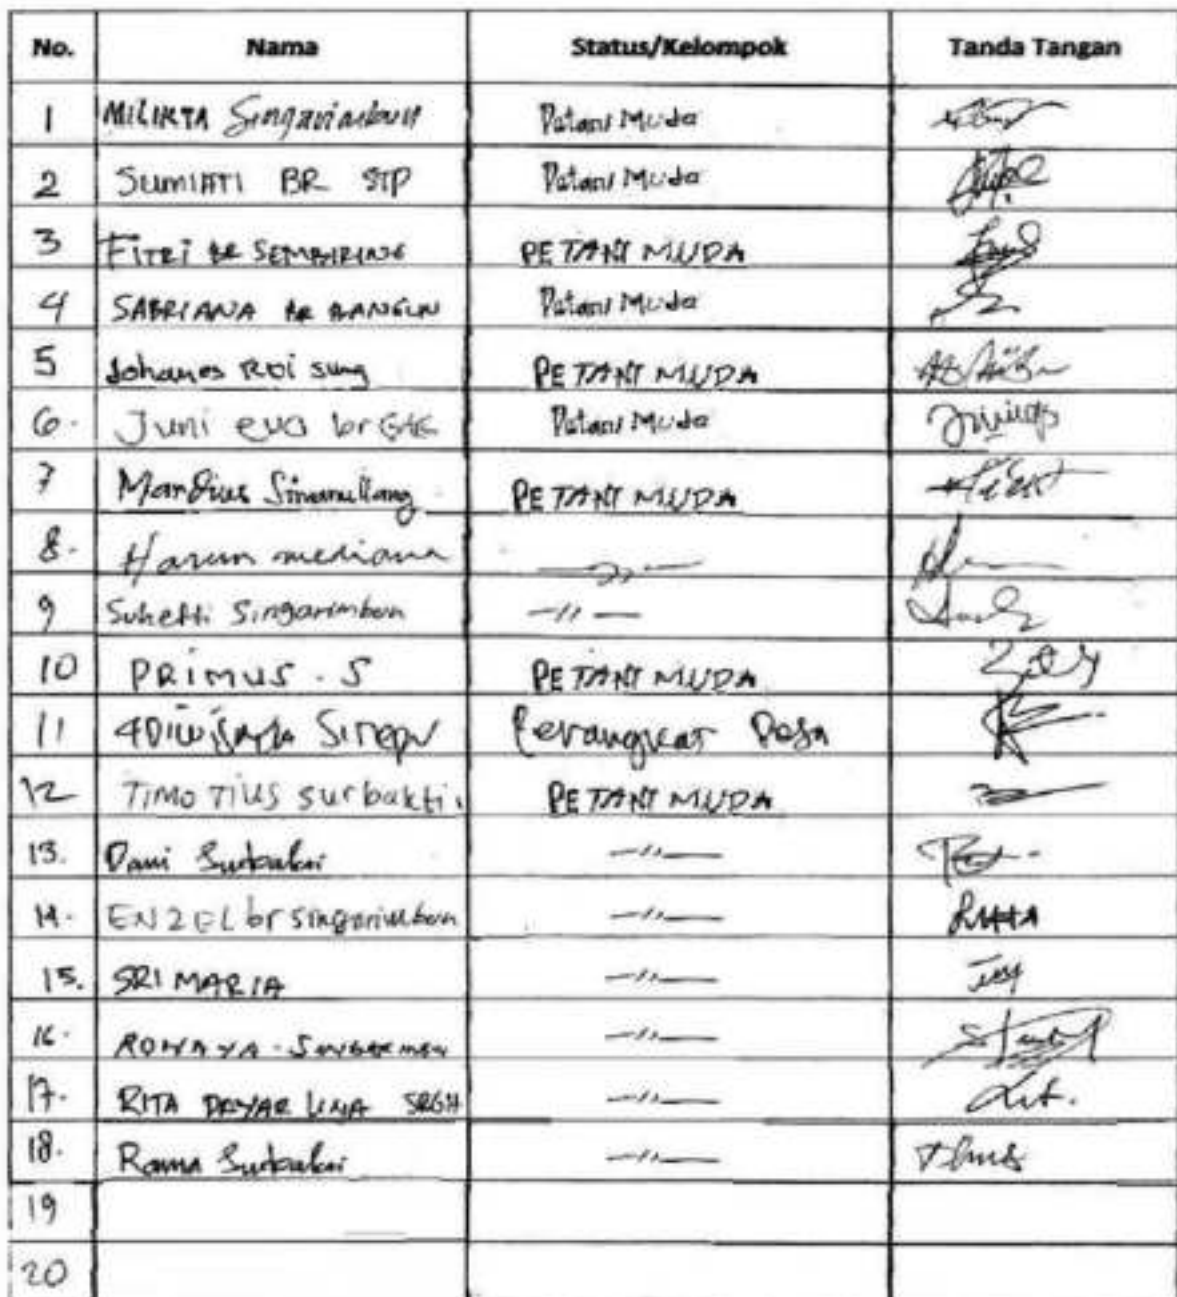 No. Nama Status/Kelompok Tanda Tangan
1 MILIKTA Singarimbun Petani Muda
2 SUMIATI BR STP Petani Muda
3 FITRI BR SEMBIRING PETANI MUDA
4 SABRIANA BR BANGUN Petani Muda
5 Johanes Roi sung PETANI MUDA
6. Juni eva br Petani Muda
7 Mardius Simanullang PETANI MUDA
8. Harum mediana —〃—
9 Suhetti Singarimbun —〃—
10 PRIMUS . S PETANI MUDA
11 ADIWIJAYA Sitepu Perangkat Desa
12 TIMOTIUS surbakti. PETANI MUDA
13. Dani Surbakti —〃—
14. ENZEL br singarimbun —〃—
15. SRI MARIA —〃—
16. —〃—
17. RITA —〃—
18. Rama Surbakti —〃—
19
20